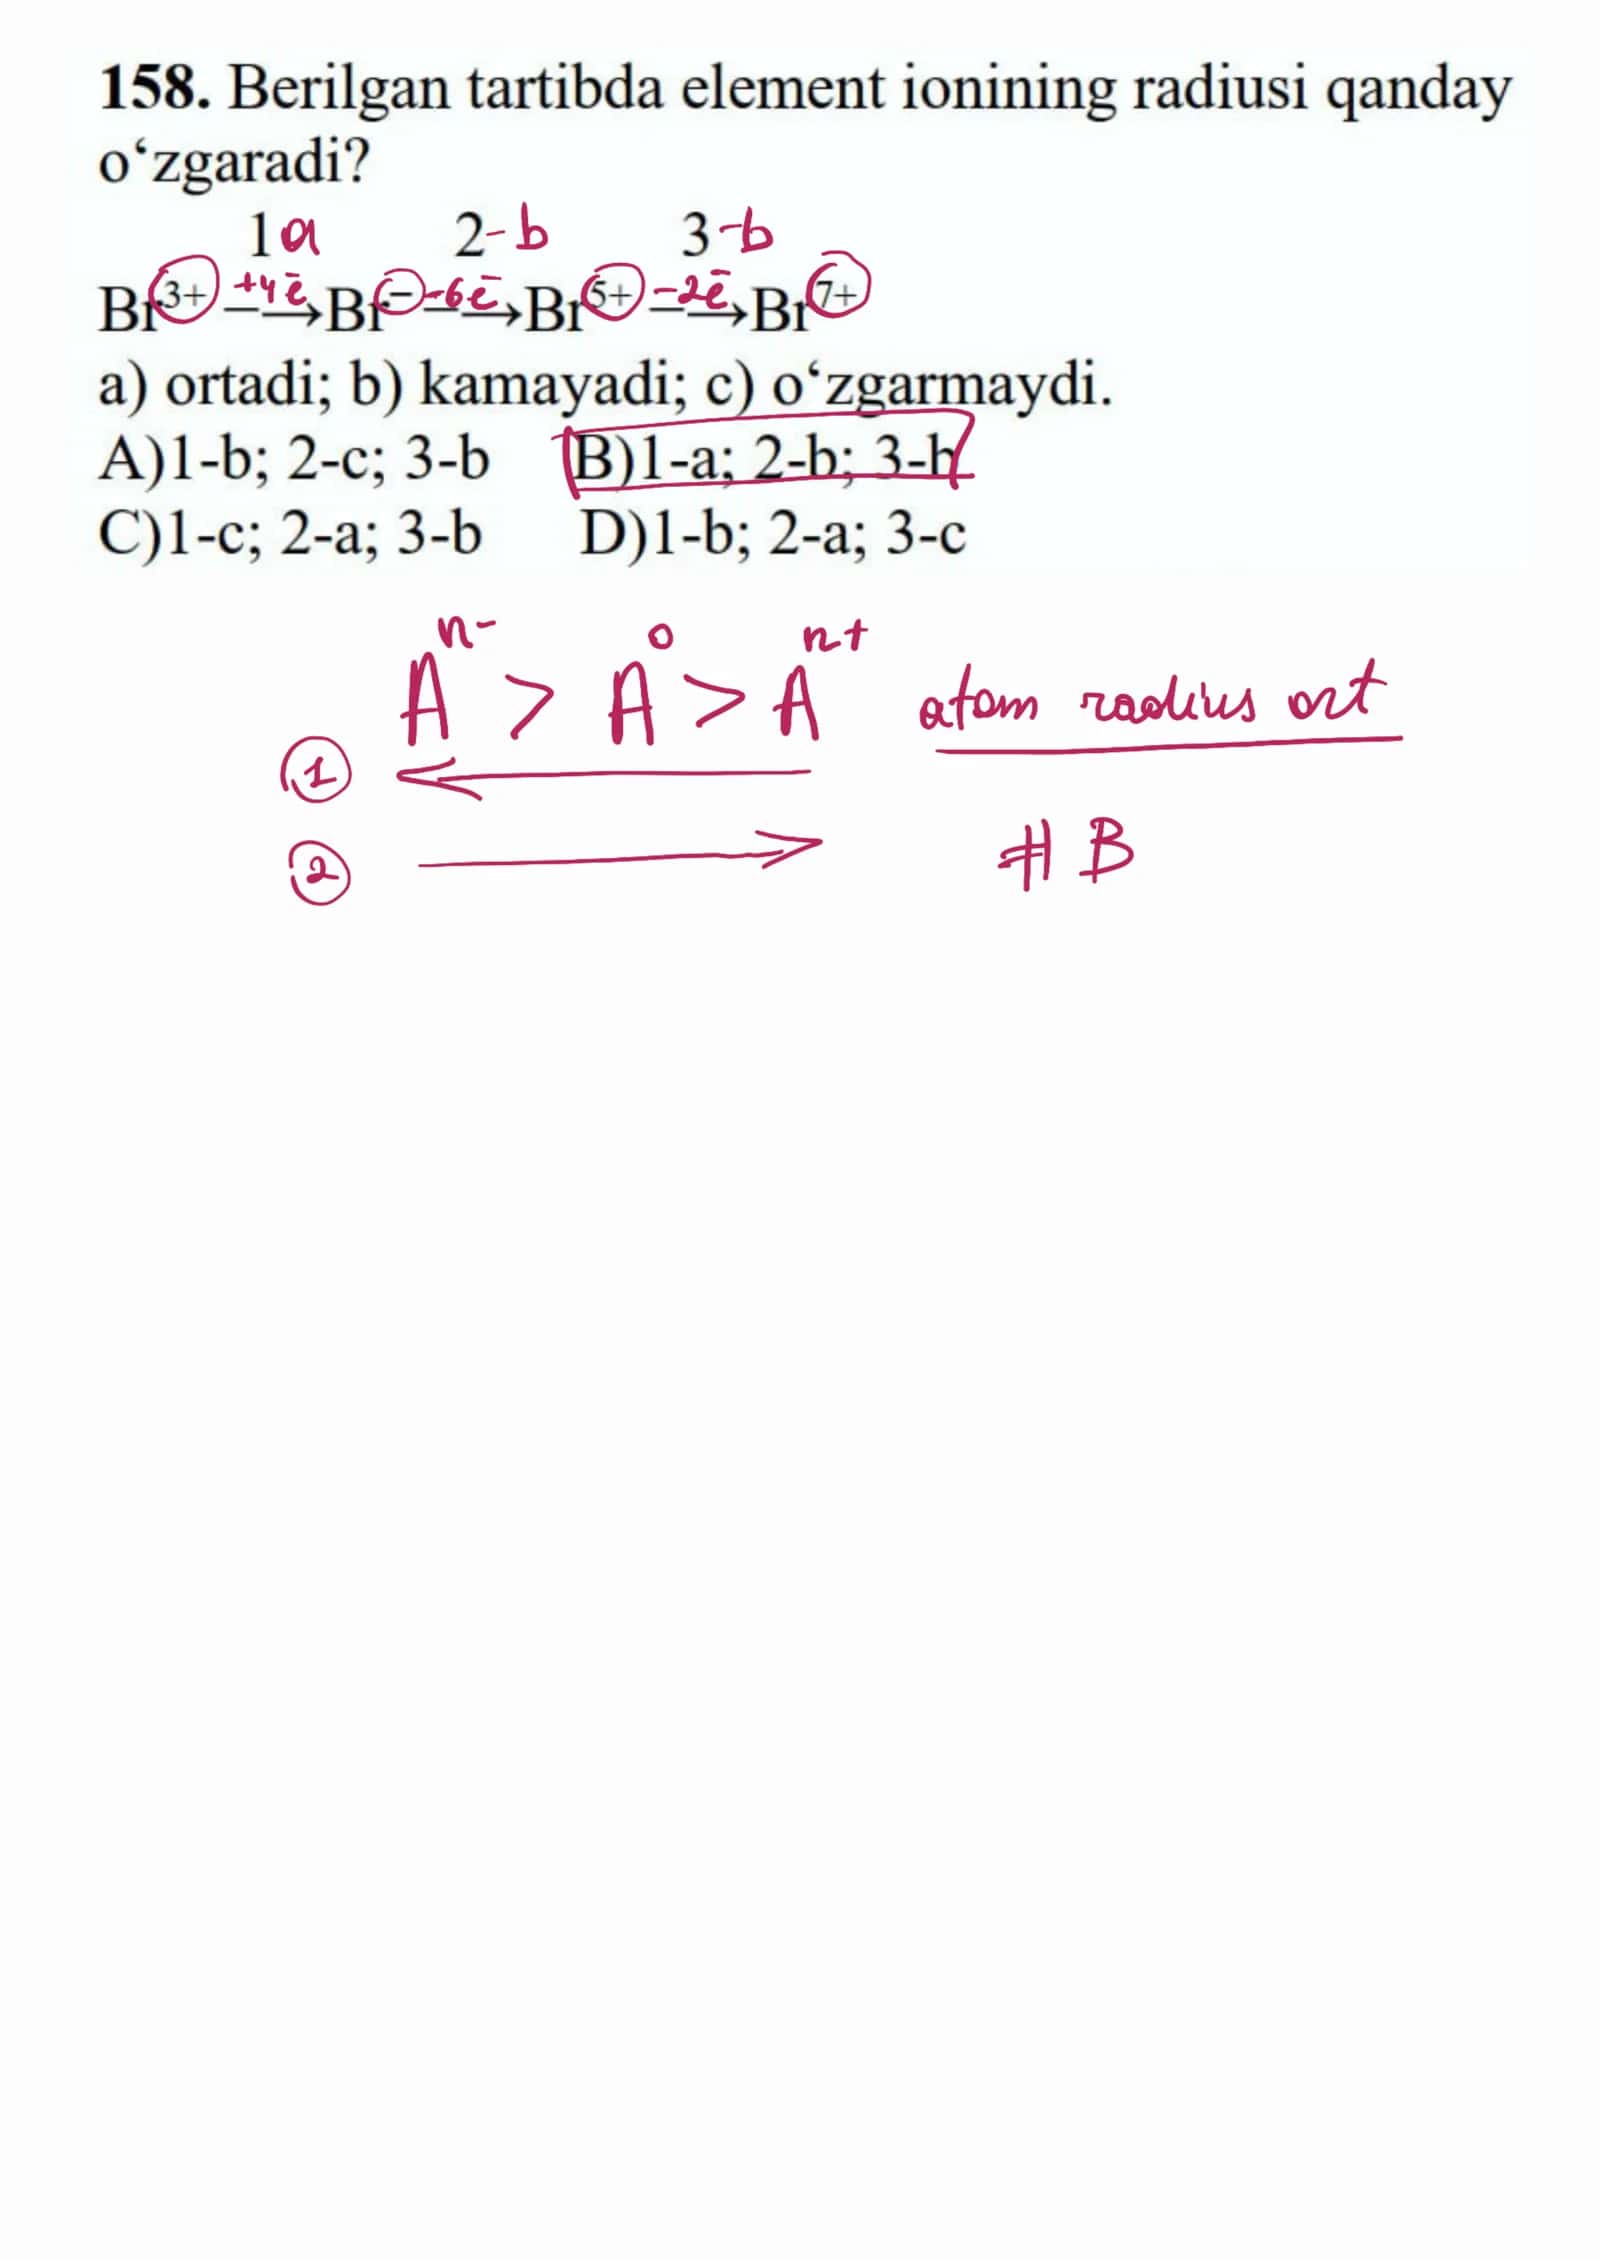 158. Berilgan tartibda element ionining radiusi qanday
o‘zgaradi?
1a 2-b 3-b
Br3+ +4ē→ Br– -6ē→ Br5+ -2ē→ Br7+
a) ortadi; b) kamayadi; c) o‘zgarmaydi.
A)1-b; 2-c; 3-b B)1-a; 2-b; 3-b
C)1-c; 2-a; 3-b D)1-b; 2-a; 3-c
A^n- > A^0 > A^n+ atom radius ort
1 ←
2 → # B